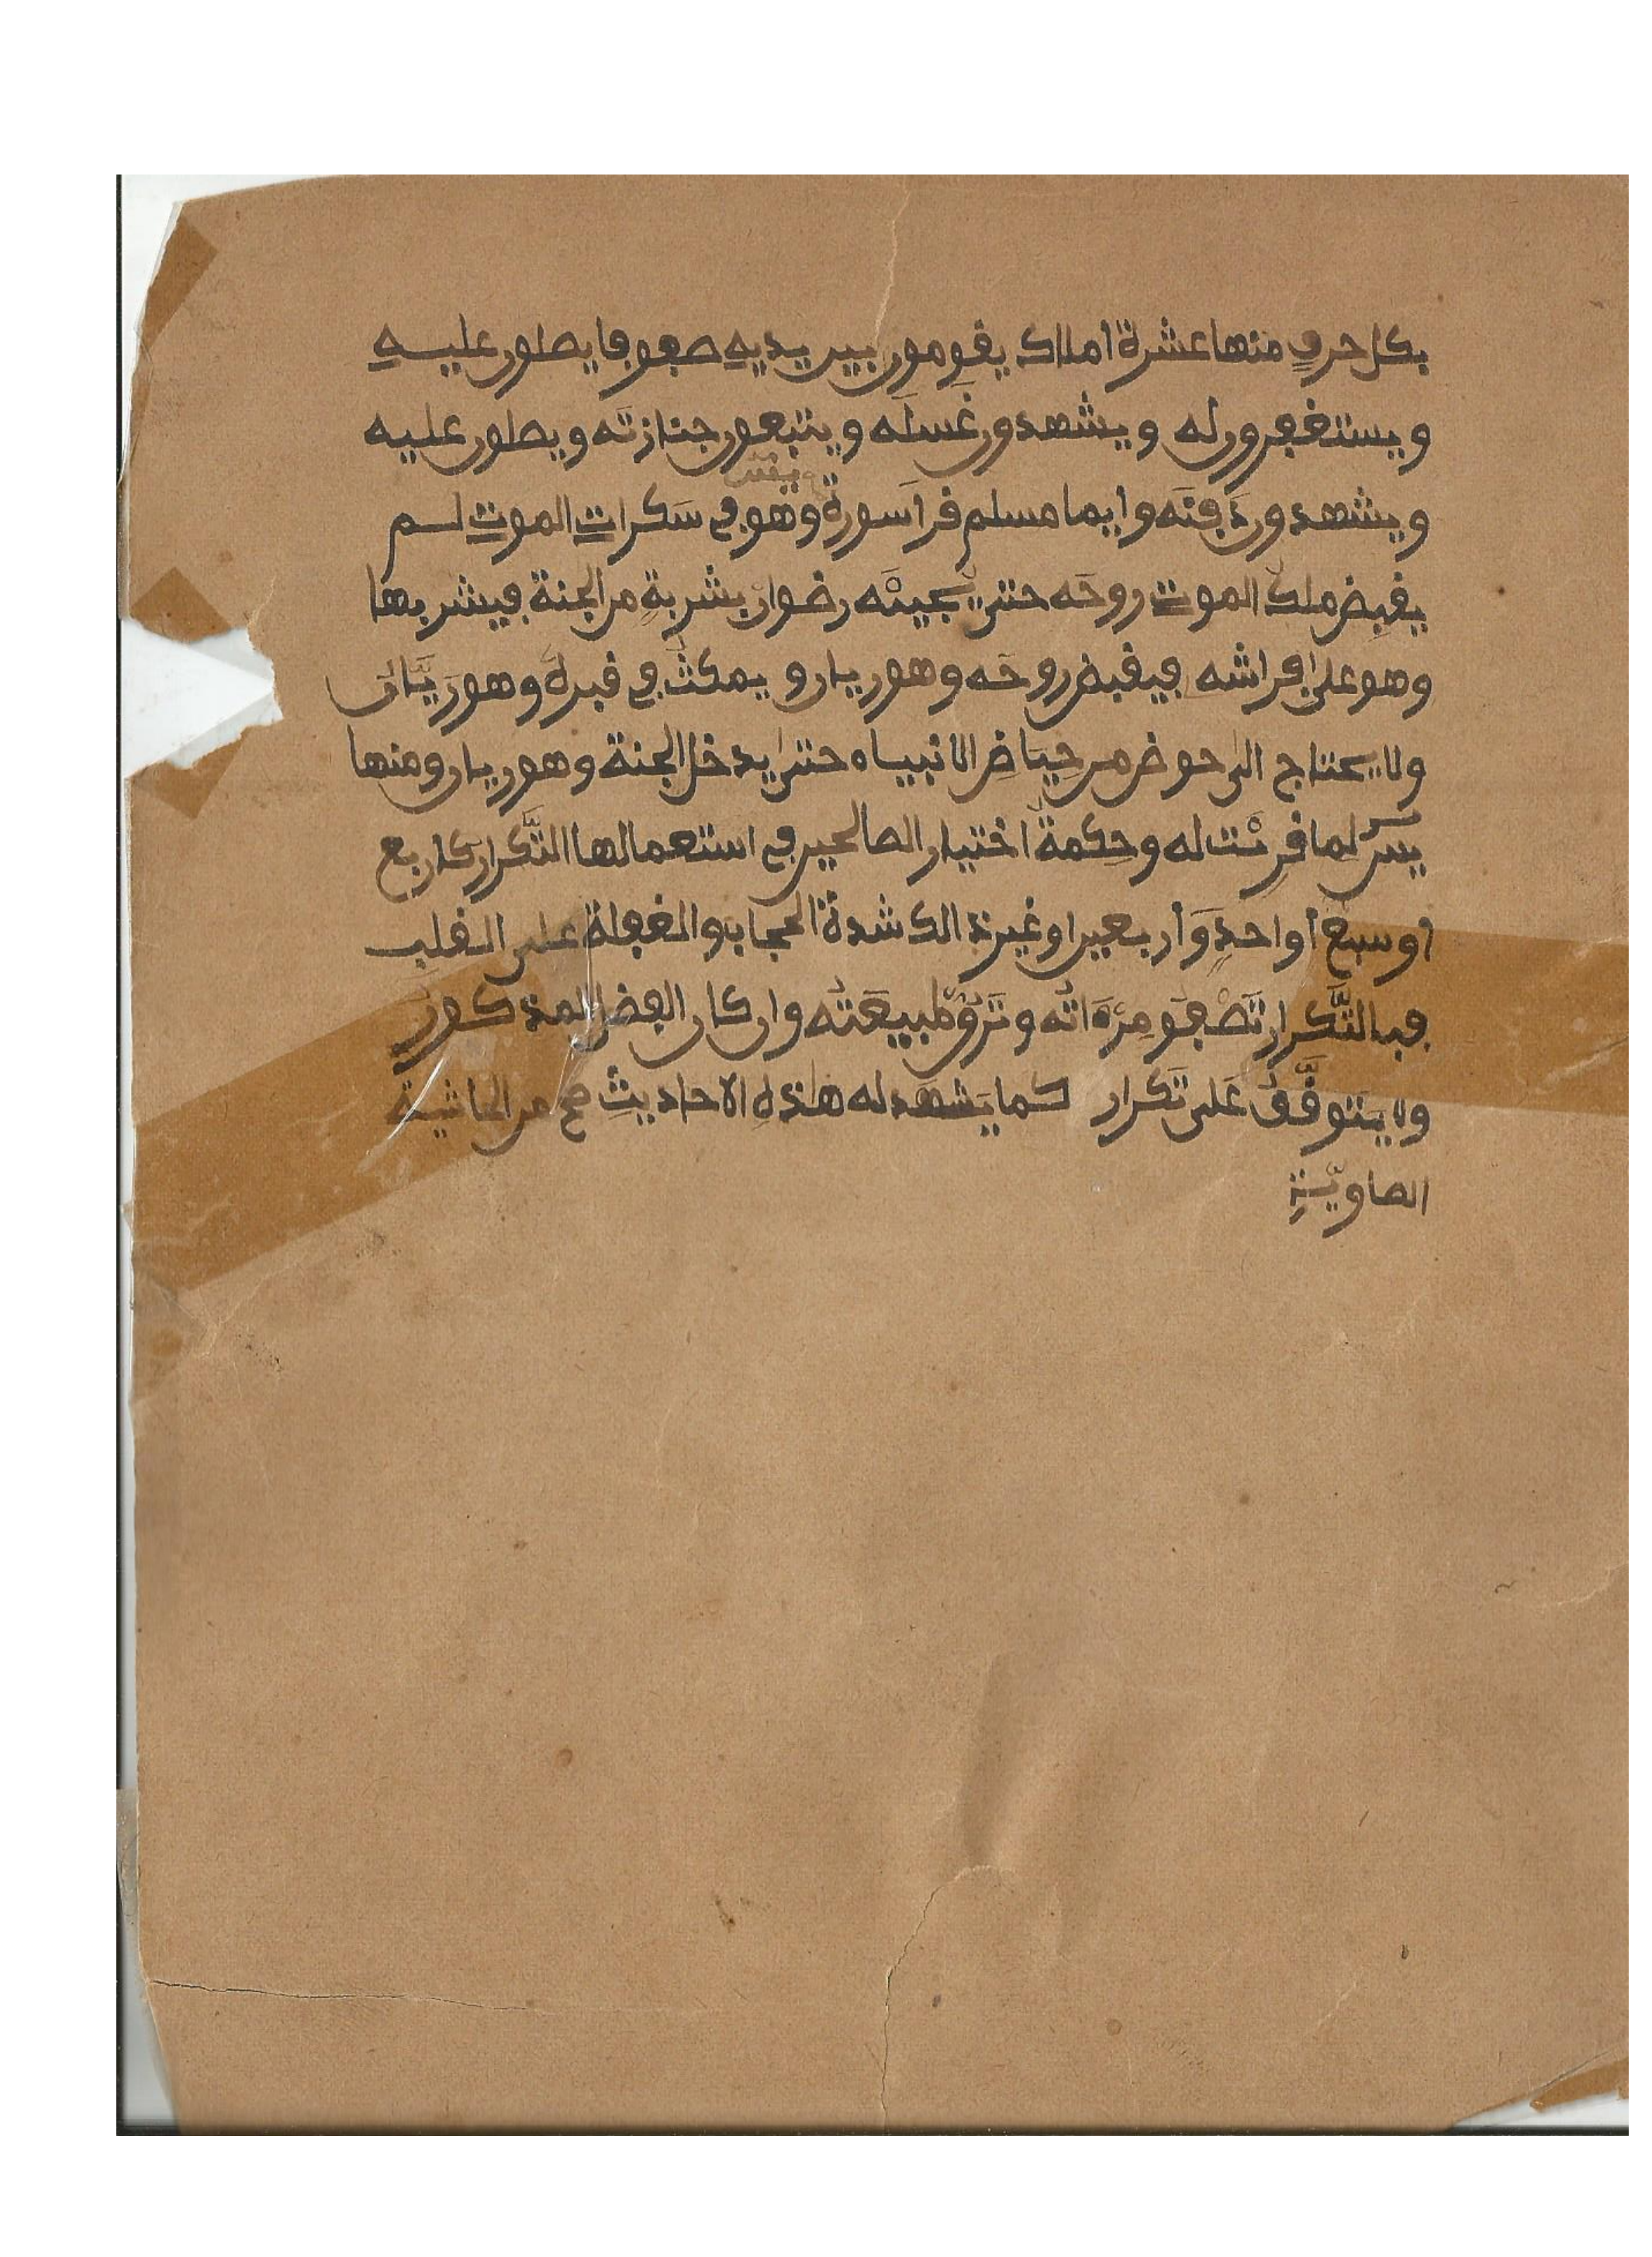 بكل حرف منها عشرة أملاك يقومون بين يديه صفوفا يصلون عليه
ويستغفرون له ويشهدون غَسلَه ويتبعون جنازتَه ويصلون عليه
ويشهدون دَفنَه وايما مسلم قرأ سورة يس وهو في سَكرات الموت لم
يقبض ملك الموت روحَه حتى يجيئَه رضوان بشربةٍ من الجنة فيشربها
وهو على فراشه فيقبض روحَه وهو ريان ويمكث في قبره وهو رَيَّان
ولا يحتاج الى حوض من حِيَاضِ الانبياء حتى يدخل الجنة وهو ريان ومنها
يس لِما قُرِئَت له وحِكمة اختيار الصالحين في استعمالها التَّكرار كاربع
أو سبع أو احدٍ وَأربعين او غير ذالك شدة الحجاب والغفلة على القلب
فبالتَّكرار تَصْفُو مِرْءَاتُه وتَرِقُّ طبيعَتُه وان كان الفضل المذكور
ولا يتوقَّفُ عَلى تَكرار كما يَشهَد له هٰذه الاحاديث صح من الحاشية
الصاويَّةِ